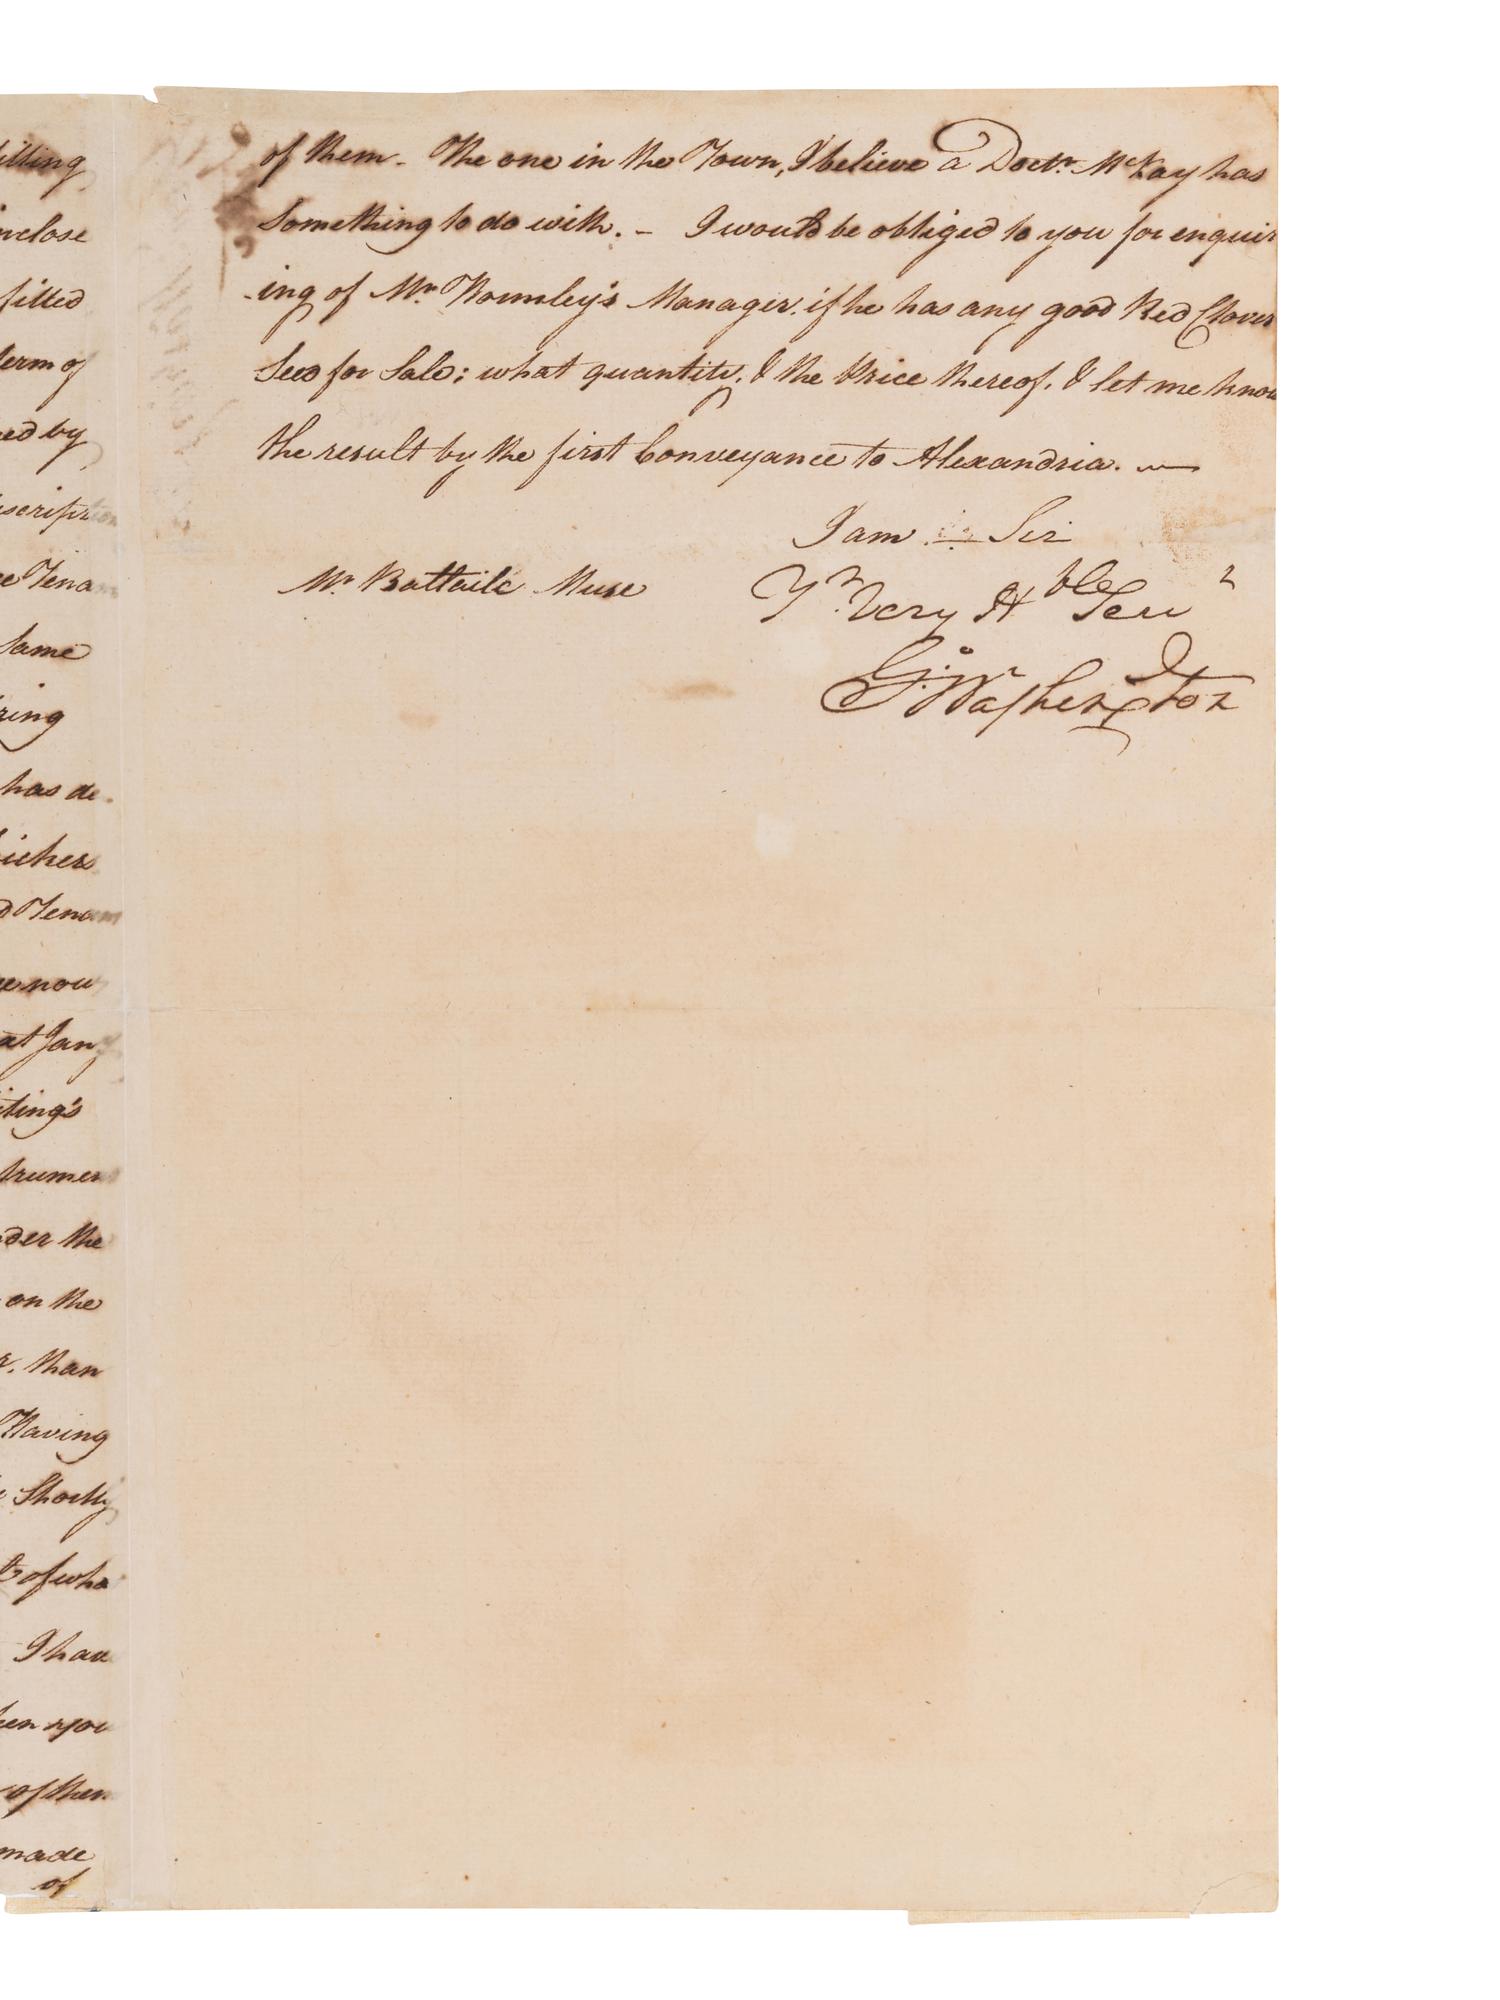 itting
inclose
fitted
term of
ned by
escription
ce Tena
same
ring
has de-
ichers
d Tenan
re now
at Jany
iting's
trumen
nder the
on the
r. than
Having
Shortly
of wha
I hav
hen you
of them
made
of
of them - The one in the Town, I believe a Doctr. McKay has
Something to do with. - I would be obliged to you for enquir
-ing of Mr Wormley's Manager. if he has any good Red Clover
Seed for Sale; what quantity, & the Price thereof. & let me know
the result by the first Conveyance to Alexandria. —
I am Sir
Yr Very Hble Serv
Mr. Battaile Muse
Go: Washington